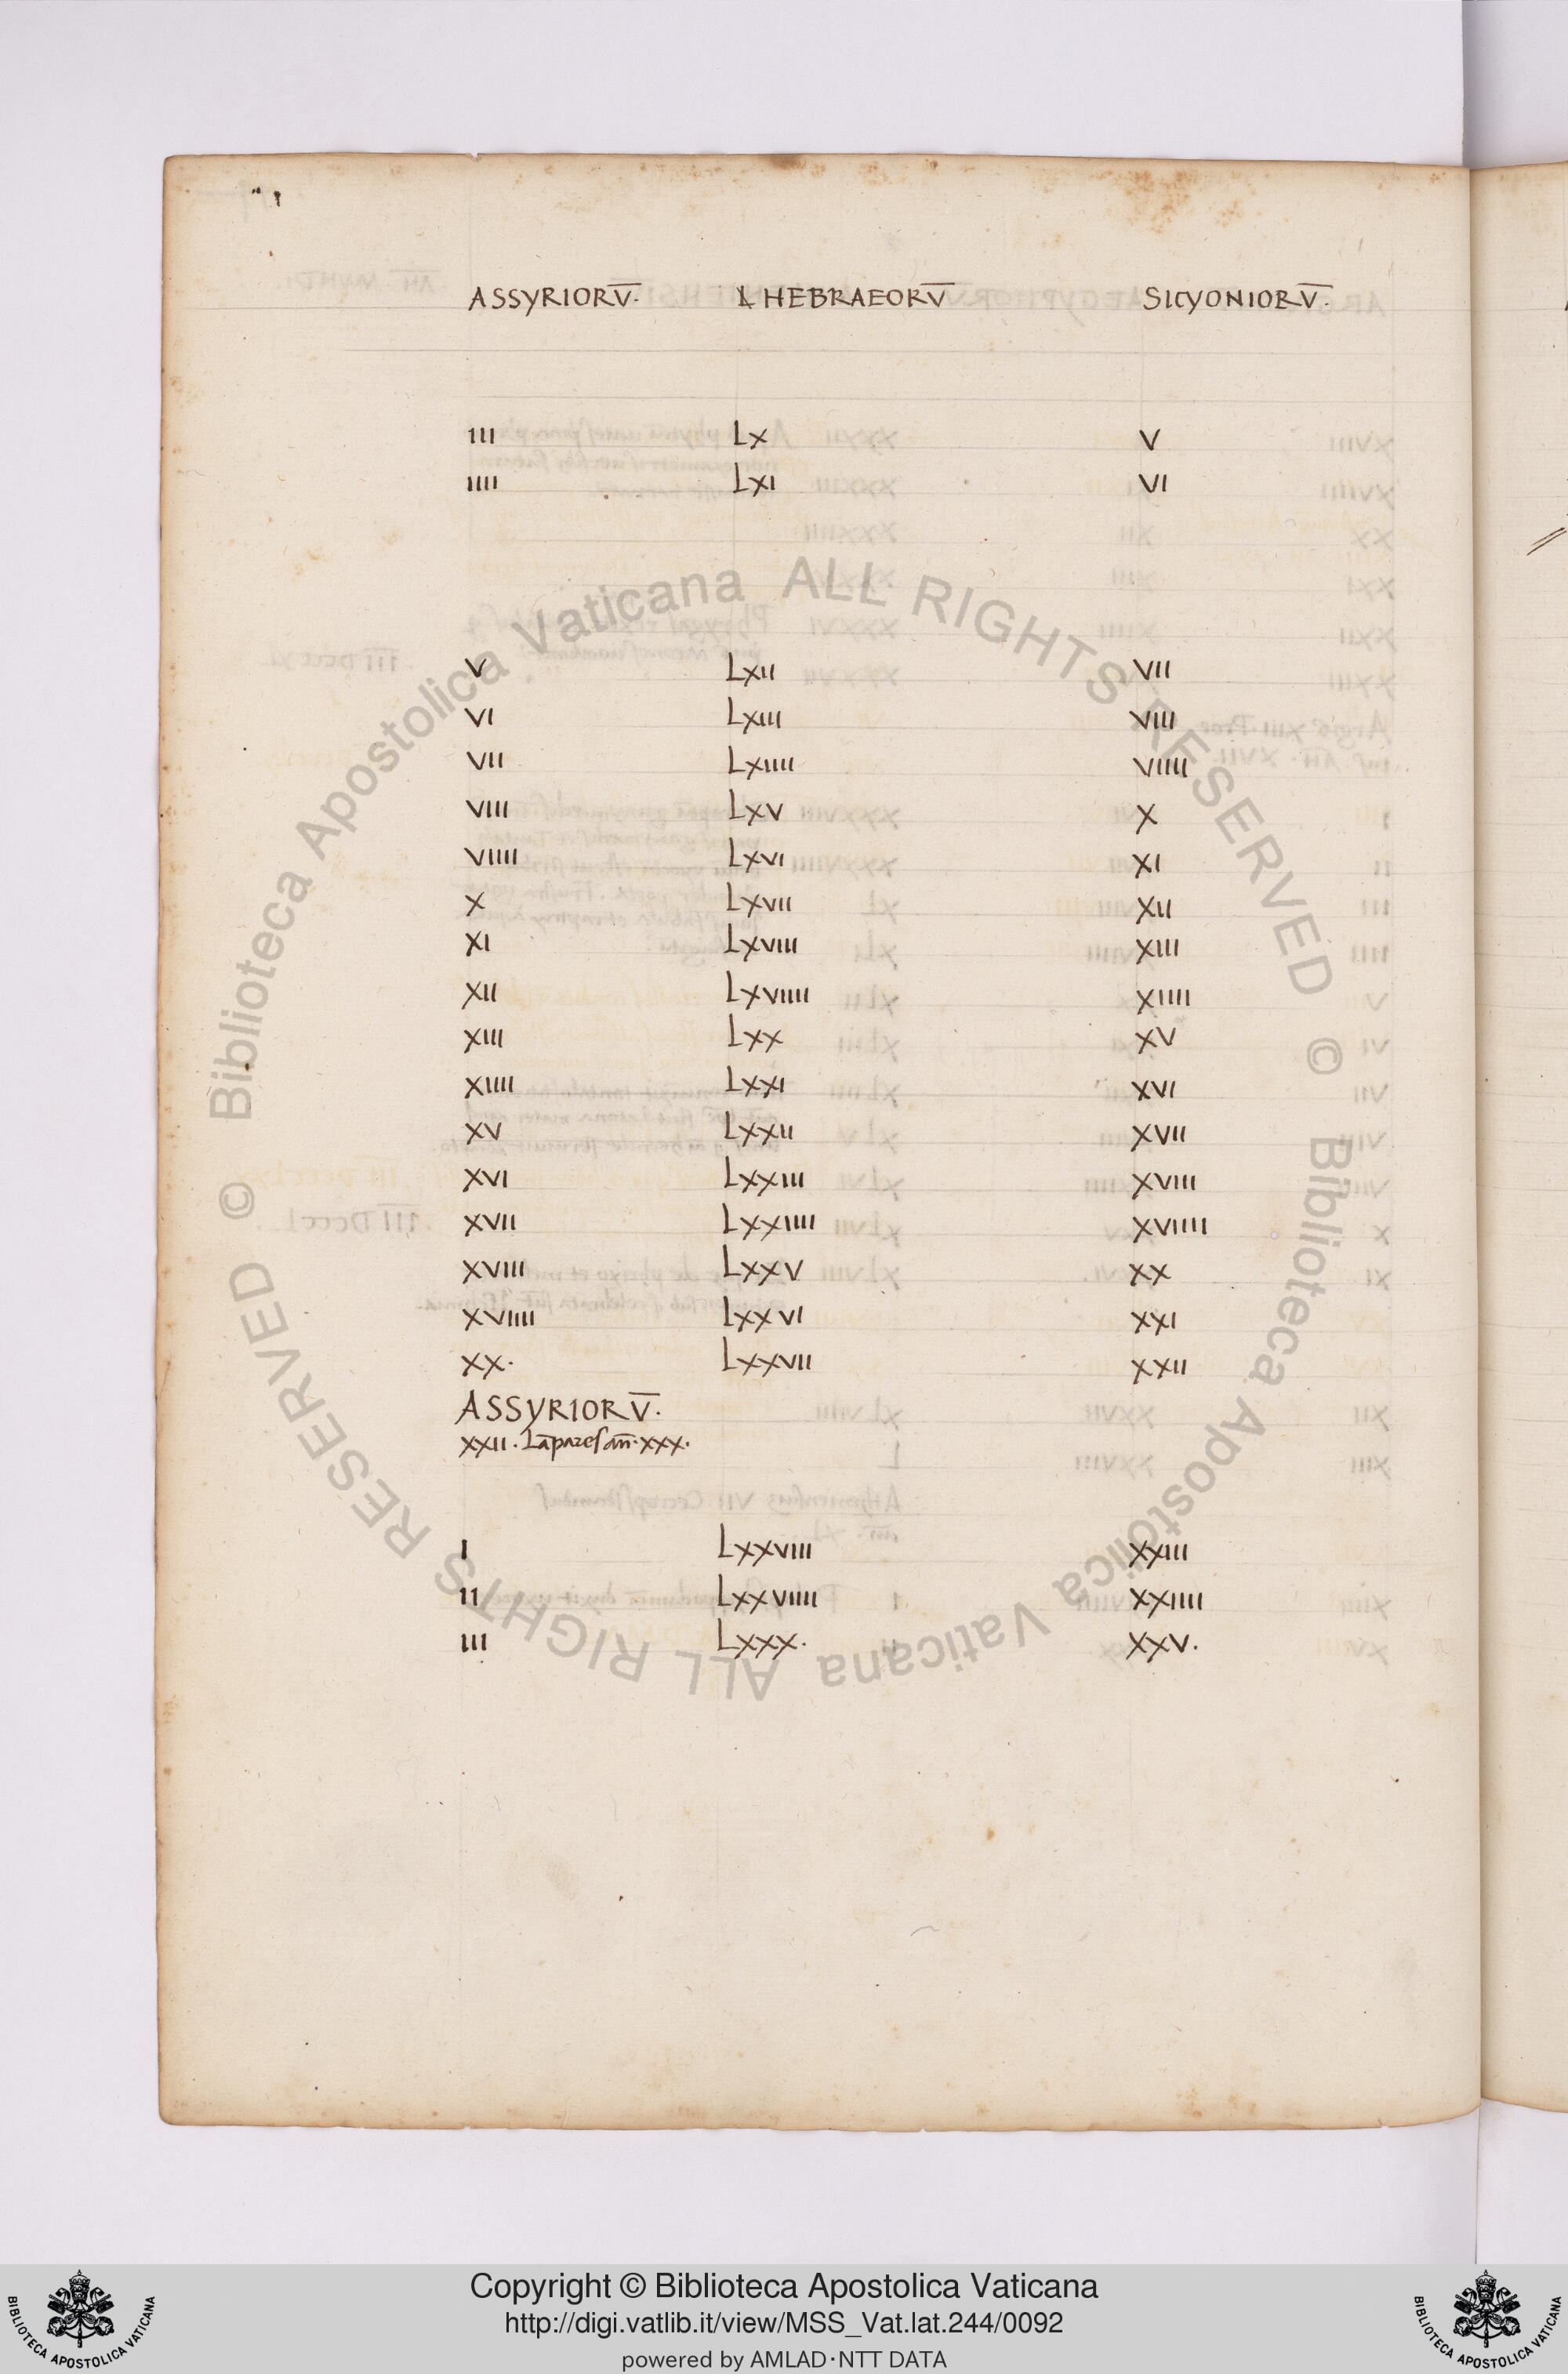 ASSYRIORV̅. HEBRAEORV̅ SICYONIORV̅.
III LX V
IIII LXI VI
V LXII VII
VI LXIII VIII
VII LXIIII VIIII
VIII LXV X
VIIII LXVI XI
X LXVII XII
XI LXVIII XIII
XII LXVIIII XIIII
XIII LXX XV
XIIII LXXI XVI
XV LXXII XVII
XVI LXXIII XVIII
XVII LXXIIII XVIIII
XVIII LXXV XX
XVIIII LXXVI XXI
XX. LXXVII XXII
ASSYRIORV̅.
XXII. La̅pares an̅. XXX.
I LXXVIII XXIII
II LXXVIIII XXIIII
III LXXX. XXV.
© Biblioteca Apostolica Vaticana ALL RIGHTS RESERVED © Biblioteca Apostolica Vaticana ALL RIGHTS RESERVED
Copyright © Biblioteca Apostolica Vaticana
http://digi.vatlib.it/view/MSS_Vat.lat.244/0092
powered by AMLAD·NTT DATA
BIBLIOTECA APOSTOLICA VATICANA
BIBLIOTECA APOSTOLICA VATICANA